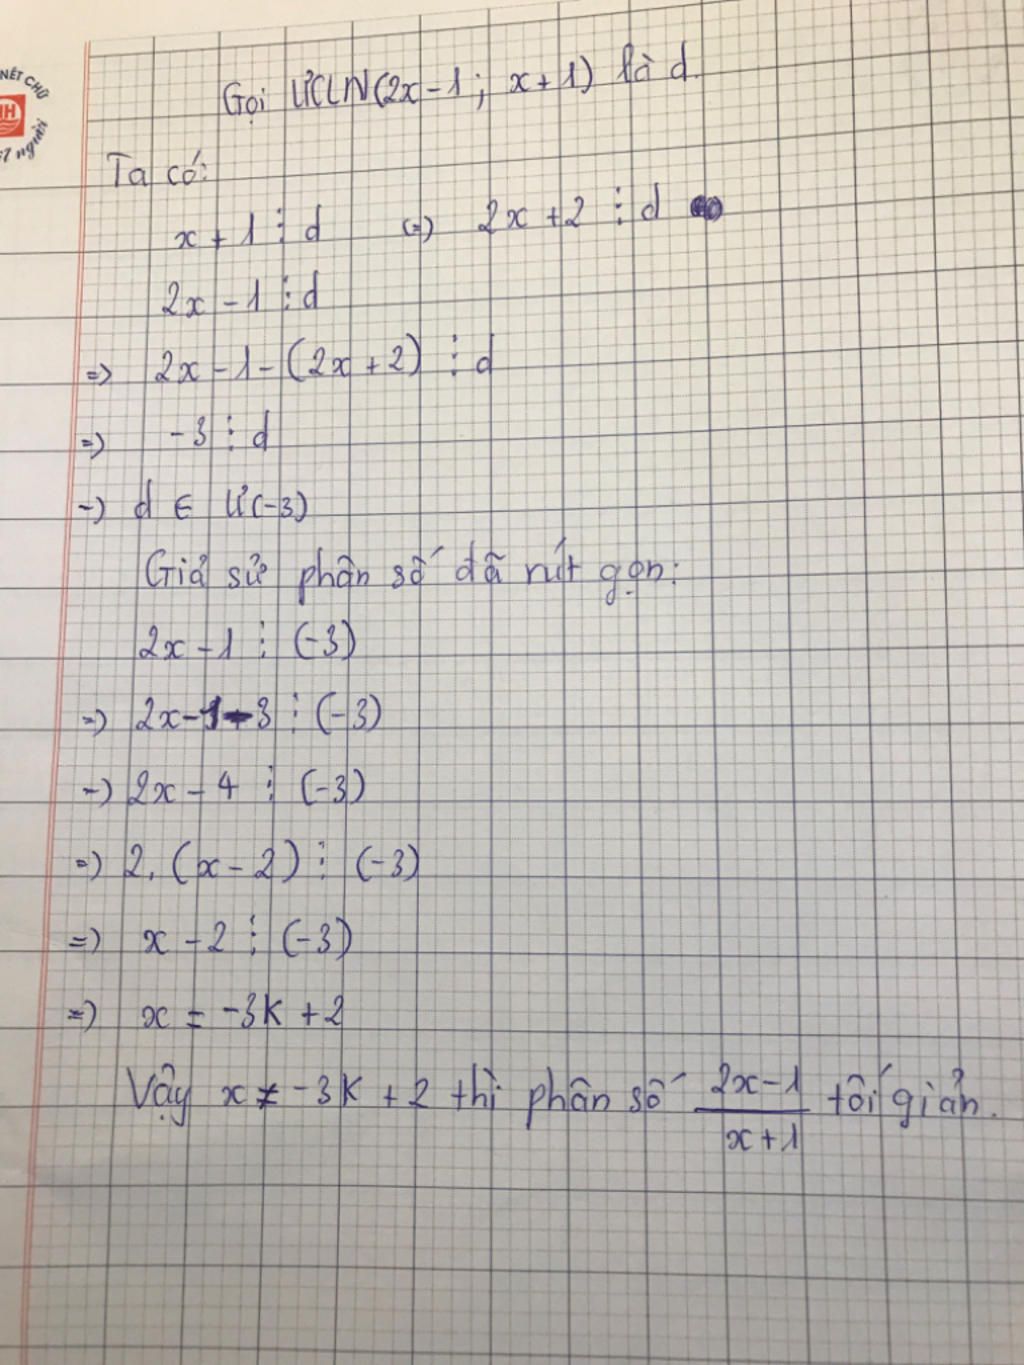 NÉT CHỮ
NH
người
Gọi ƯCLN(2x-1; x+1) là d.
Ta có:
x+1 ⋮ d (=) 2x+2 ⋮ d
2x-1 ⋮ d
=) 2x-1-(2x+2) ⋮ d
=) -3 ⋮ d
-) d ∈ Ư(-3)
Giả sử phân số đã rút gọn:
2x-1 ⋮ (-3)
=) 2x-1-3 ⋮ (-3)
-) 2x-4 ⋮ (-3)
=) 2.(x-2) ⋮ (-3)
=) x-2 ⋮ (-3)
=) x = -3K+2
Vậy x ≠ -3K+2 thì phân số (2x-1)/(x+1) tối giản.